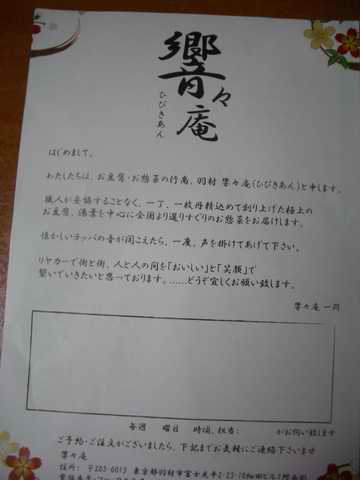 響々庵
ひびきあん
はじめまして。
わたしたちは、お豆腐・お惣菜の行商、羽村 響々庵(ひびきあん)と申します。
職人が妥協することなく、一丁、一枚丹精込めて創り上げた極上の
お豆腐、湯葉を中心に全国より選りすぐりのお惣菜をお届けします。
懐かしいラッパの音が聞こえたら、一度、声を掛けてあげて下さい。
リヤカーで街と街、人と人の間を「おいしい」と「笑顔」で
繋いでいきたいと思っております。……どうぞ宜しくお願い致します。
響々庵 一同
毎週 曜日 時頃、担当: がお伺い致します
ご予約・ご注文がございましたら、下記までお気軽にご連絡下さいませ
響々庵
住所: 〒205-0013 東京都羽村市富士見平2-23-10